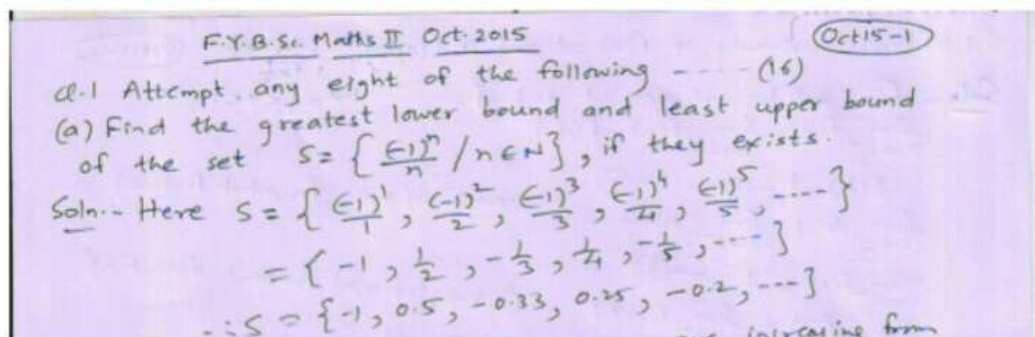 F.Y.B.Sc. Maths II Oct. 2015 Oct15-1
Q.1 Attempt any eight of the following ---- (16)
(a) Find the greatest lower bound and least upper bound
of the set S = { (-1)^n/n / n ∈ N }, if they exists.
Soln.. Here S = { (-1)^1/1, (-1)^2/2, (-1)^3/3, (-1)^4/4, (-1)^5/5, ---- }
= { -1, 1/2, -1/3, 1/4, -1/5, --- }
∴ S = { -1, 0.5, -0.33, 0.25, -0.2, --- }
increasing from